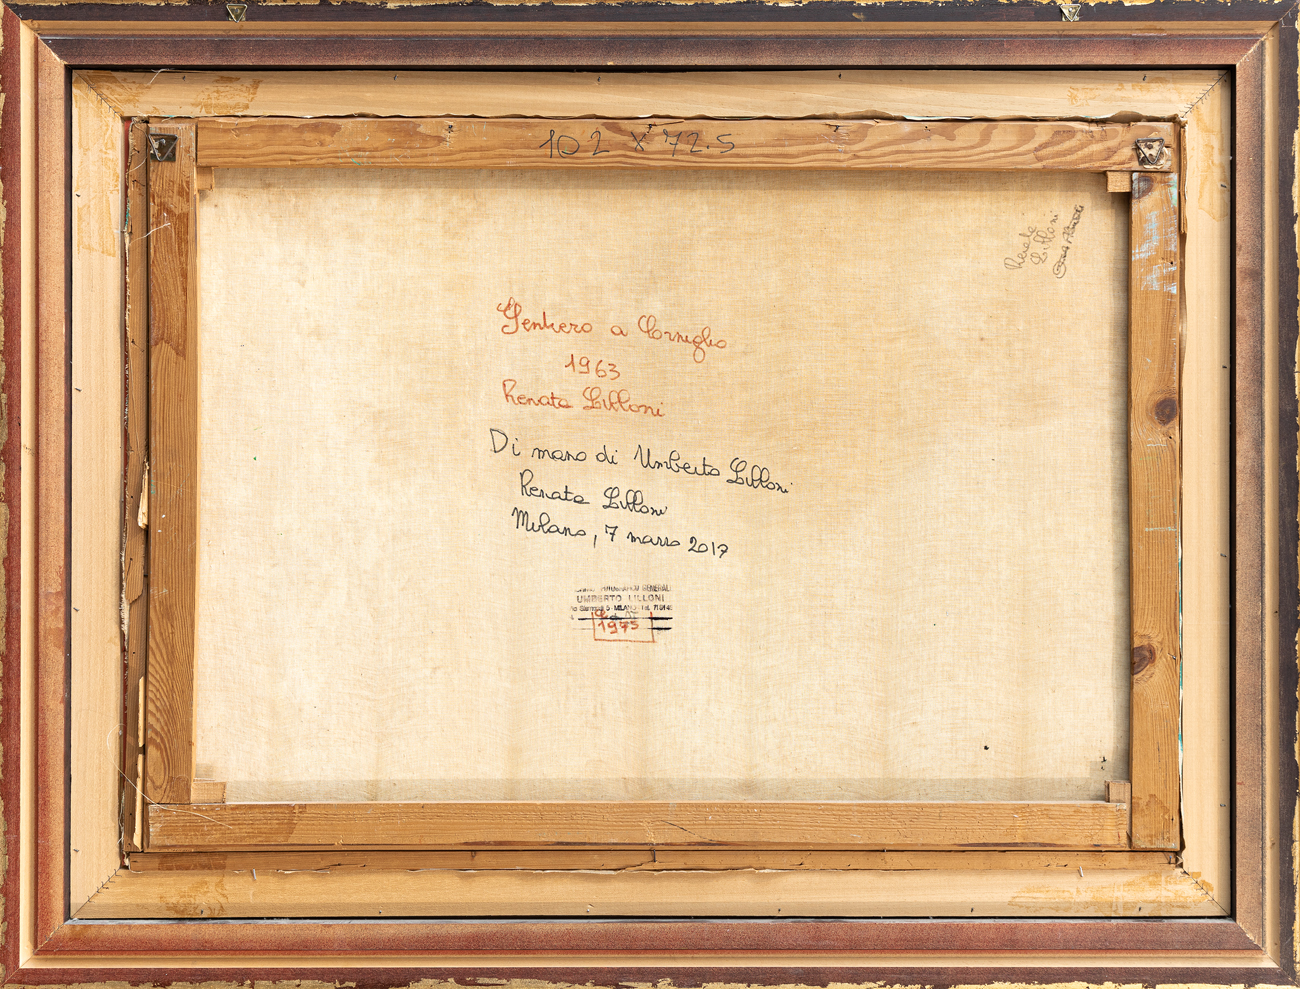 102 x 72.5
Renata
Lilloni
Sentiero a Corniglia
1963
Renata Lilloni
Di mano di Umberto Lilloni
Renata Lilloni
Milano, 7 marzo 2017
FOTOGRAFICO GENERALE
UMBERTO LILLONI
5 - MILANO - Tel.
1975